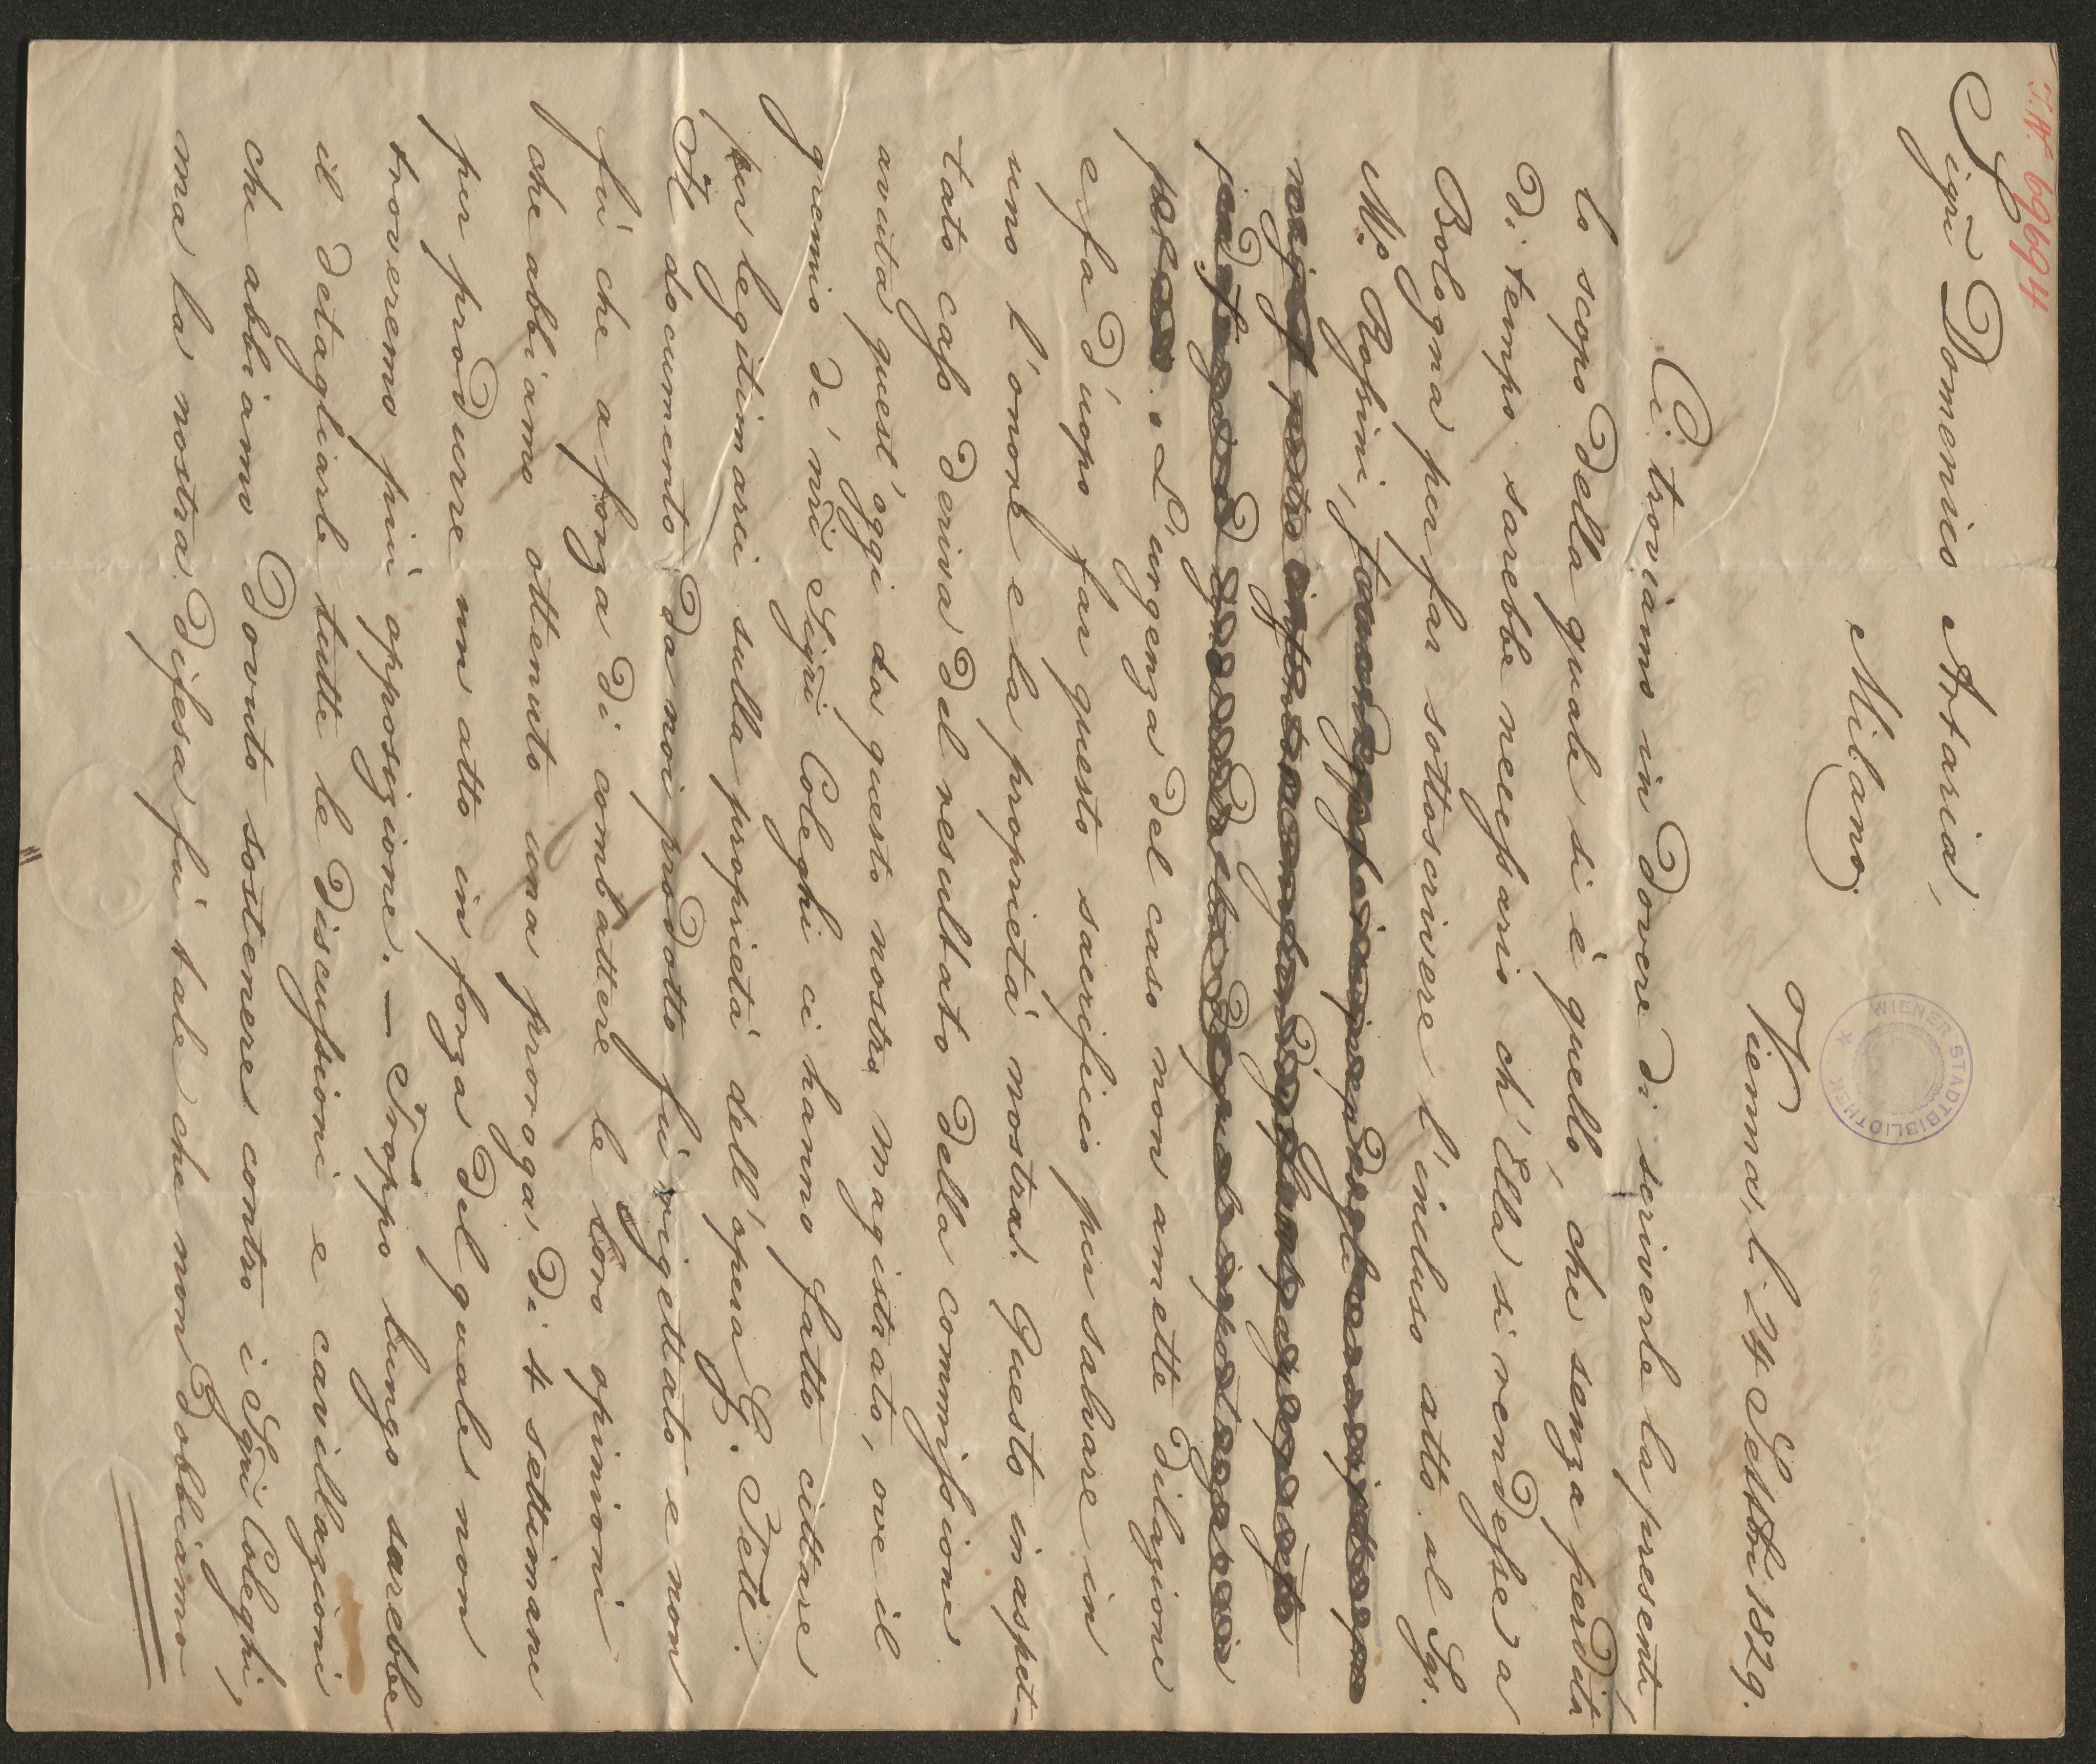 I.N. 69694
Sigri Domenico Artaria,
Milano.
WIENER STADTBIBLIOTHEK
Vienna, li 24 Settbri 1829.
Ci troviamo in dovere di scriverle la presente,
lo scopo della quale si è quello, che senza perdita
di tempo sarebbe necessario ch'Ella si rendesse a
Bologna per far sottoscrivere l'incluso atto al Sgr.
Mo. Rossini,
L'urgenza del caso non amette dilazione
e fa d'uopo far questo sacrificio per salvare in
uno l'onore e la proprietà nostra. Questo inaspet-
tato caso deriva del resultato della commissione
avuta quest'oggi da questo nostro magistrato, ove il
gremio de' nri Sigri Coleghi ci hanno fatto cittare
per legitimarci sulla proprietà dell'opera G. Tell.
Il documento da noi prodotto fù rigettato e non
fù che a forza di combattere le loro opinioni
che abbiamo ottenuto una proroga di 4 settimane
per produrre un atto in forza del quale non
troveremo più opposizione. — Troppo lungo sarebbe
il detagliarle tutte le discussioni e cavillazioni
che abbiamo dovuto sostenere contro i Sgri Coleghi,
ma la nostra difesa fù tale che non dobbiamo